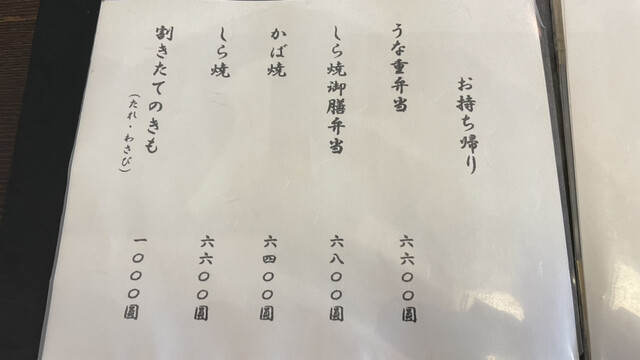 お持ち帰り
うな重弁当 六六〇〇圓
しら焼御膳弁当 六八〇〇圓
かば焼 六四〇〇圓
しら焼 六六〇〇圓
割きたてのきも(たれ・わさび) 一〇〇〇圓